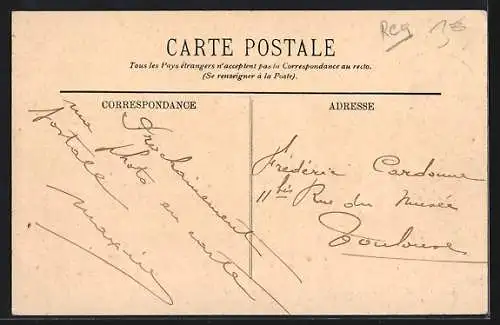 Reg 15€
CARTE POSTALE
Tous les Pays étrangers n'acceptent pas la Correspondance au recto.
(Se renseigner à la Poste).
CORRESPONDANCE
Prochainement
ma photo en carte
postale
Maxime
ADRESSE
Frédéric Cardonne
11 bis Rue du Musée
Toulouse